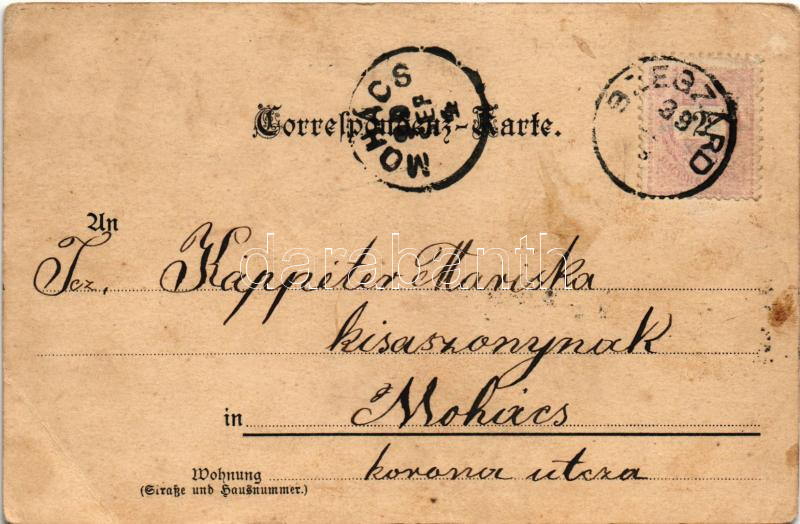 MOHÁCS
SEP
SZEGZÁRD
Correspondenz-Karte.
An
Tcz. Káppéter Mariska
kisaszonynak
in Mohács
Wohnung korona utcza
(Straße und Hausnummer.)
darabanth